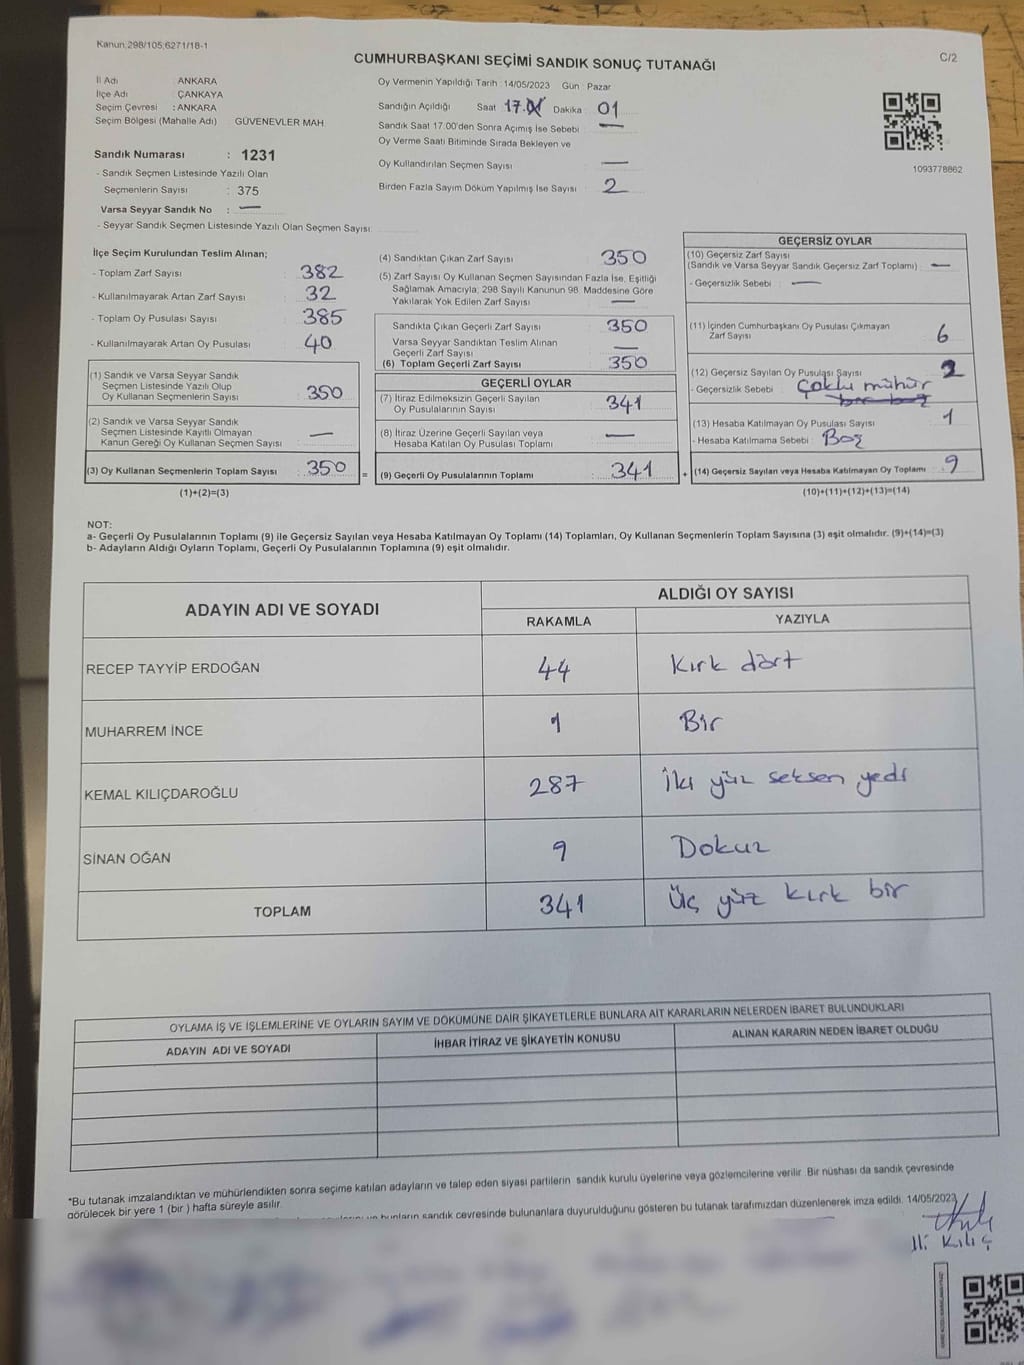 Kanun;298/105;6271/18-1
C/2
CUMHURBAŞKANI SEÇİMİ SANDIK SONUÇ TUTANAĞI
İl Adı : ANKARA
İlçe Adı : ÇANKAYA
Seçim Çevresi : ANKARA
Seçim Bölgesi (Mahalle Adı) GÜVENEVLER MAH.
Sandık Numarası : 1231
- Sandık Seçmen Listesinde Yazılı Olan
Seçmenlerin Sayısı : 375
Varsa Seyyar Sandık No : —
- Seyyar Sandık Seçmen Listesinde Yazılı Olan Seçmen Sayısı:
Oy Vermenin Yapıldığı Tarih : 14/05/2023 Gün : Pazar
Sandığın Açıldığı Saat 17. Dakika : 01
Sandık Saat 17:00'den Sonra Açımış İse Sebebi : —
Oy Verme Saati Bitiminde Sırada Bekleyen ve
Oy Kullandırılan Seçmen Sayısı : —
Birden Fazla Sayım Döküm Yapılmış İse Sayısı : 2
1093778862
İlçe Seçim Kurulundan Teslim Alınan;
- Toplam Zarf Sayısı : 382
- Kullanılmayarak Artan Zarf Sayısı : 32
- Toplam Oy Pusulası Sayısı : 385
- Kullanılmayarak Artan Oy Pusulası : 40
(1) Sandık ve Varsa Seyyar Sandık
Seçmen Listesinde Yazılı Olup
Oy Kullanan Seçmenlerin Sayısı : 350
(2) Sandık ve Varsa Seyyar Sandık
Seçmen Listesinde Kayıtlı Olmayan
Kanun Gereği Oy Kullanan Seçmen Sayısı : —
(3) Oy Kullanan Seçmenlerin Toplam Sayısı : 350 =
(1)+(2)=(3)
(4) Sandıktan Çıkan Zarf Sayısı : 350
(5) Zarf Sayısı Oy Kullanan Seçmen Sayısından Fazla İse, Eşitliği
Sağlamak Amacıyla; 298 Sayılı Kanunun 98. Maddesine Göre
Yakılarak Yok Edilen Zarf Sayısı : —
Sandıkta Çıkan Geçerli Zarf Sayısı : 350
Varsa Seyyar Sandıktan Teslim Alınan
Geçerli Zarf Sayısı : —
(6) Toplam Geçerli Zarf Sayısı : 350
GEÇERLİ OYLAR
(7) İtiraz Edilmeksizin Geçerli Sayılan
Oy Pusulalarının Sayısı : 341
(8) İtiraz Üzerine Geçerli Sayılan veya
Hesaba Katılan Oy Pusulası Toplamı : —
(9) Geçerli Oy Pusulalarının Toplamı : 341 +
GEÇERSİZ OYLAR
(10) Geçersiz Zarf Sayısı
(Sandık ve Varsa Seyyar Sandık Geçersiz Zarf Toplamı) : —
- Geçersizlik Sebebi : —
(11) İçinden Cumhurbaşkanı Oy Pusulası Çıkmayan
Zarf Sayısı : 6
(12) Geçersiz Sayılan Oy Pusulası Sayısı : 2
- Geçersizlik Sebebi : Çoklu mühür
(13) Hesaba Katılmayan Oy Pusulası Sayısı : 1
- Hesaba Katılmama Sebebi : Boş
(14) Geçersiz Sayılan veya Hesaba Katılmayan Oy Toplamı : 9
(10)+(11)+(12)+(13)=(14)
NOT:
a- Geçerli Oy Pusulalarının Toplamı (9) ile Geçersiz Sayılan veya Hesaba Katılmayan Oy Toplamı (14) Toplamları, Oy Kullanan Seçmenlerin Toplam Sayısına (3) eşit olmalıdır. (9)+(14)=(3)
b- Adayların Aldığı Oyların Toplamı, Geçerli Oy Pusulalarının Toplamına (9) eşit olmalıdır.
ADAYIN ADI VE SOYADI
ALDIĞI OY SAYISI
RAKAMLA YAZIYLA
RECEP TAYYİP ERDOĞAN 44 Kırk dört
MUHARREM İNCE 1 Bir
KEMAL KILIÇDAROĞLU 287 İki yüz seksen yedi
SİNAN OĞAN 9 Dokuz
TOPLAM 341 Üç yüz kırk bir
OYLAMA İŞ VE İŞLEMLERİNE VE OYLARIN SAYIM VE DÖKÜMÜNE DAİR ŞİKAYETLERLE BUNLARA AİT KARARLARIN NELERDEN İBARET BULUNDUKLARI
ADAYIN ADI VE SOYADI İHBAR İTİRAZ VE ŞİKAYETİN KONUSU ALINAN KARARIN NEDEN İBARET OLDUĞU
*Bu tutanak imzalandıktan ve mühürlendikten sonra seçime katılan adayların ve talep eden siyasi partilerin sandık kurulu üyelerine veya gözlemcilerine verilir. Bir nüshası da sandık çevresinde
görülecek bir yere 1 (bir ) hafta süreyle asılır.
bunların sandık çevresinde bulunanlara duyurulduğunu gösteren bu tutanak tarafımızdan düzenlenerek imza edildi. 14/05/2023
Kılıç